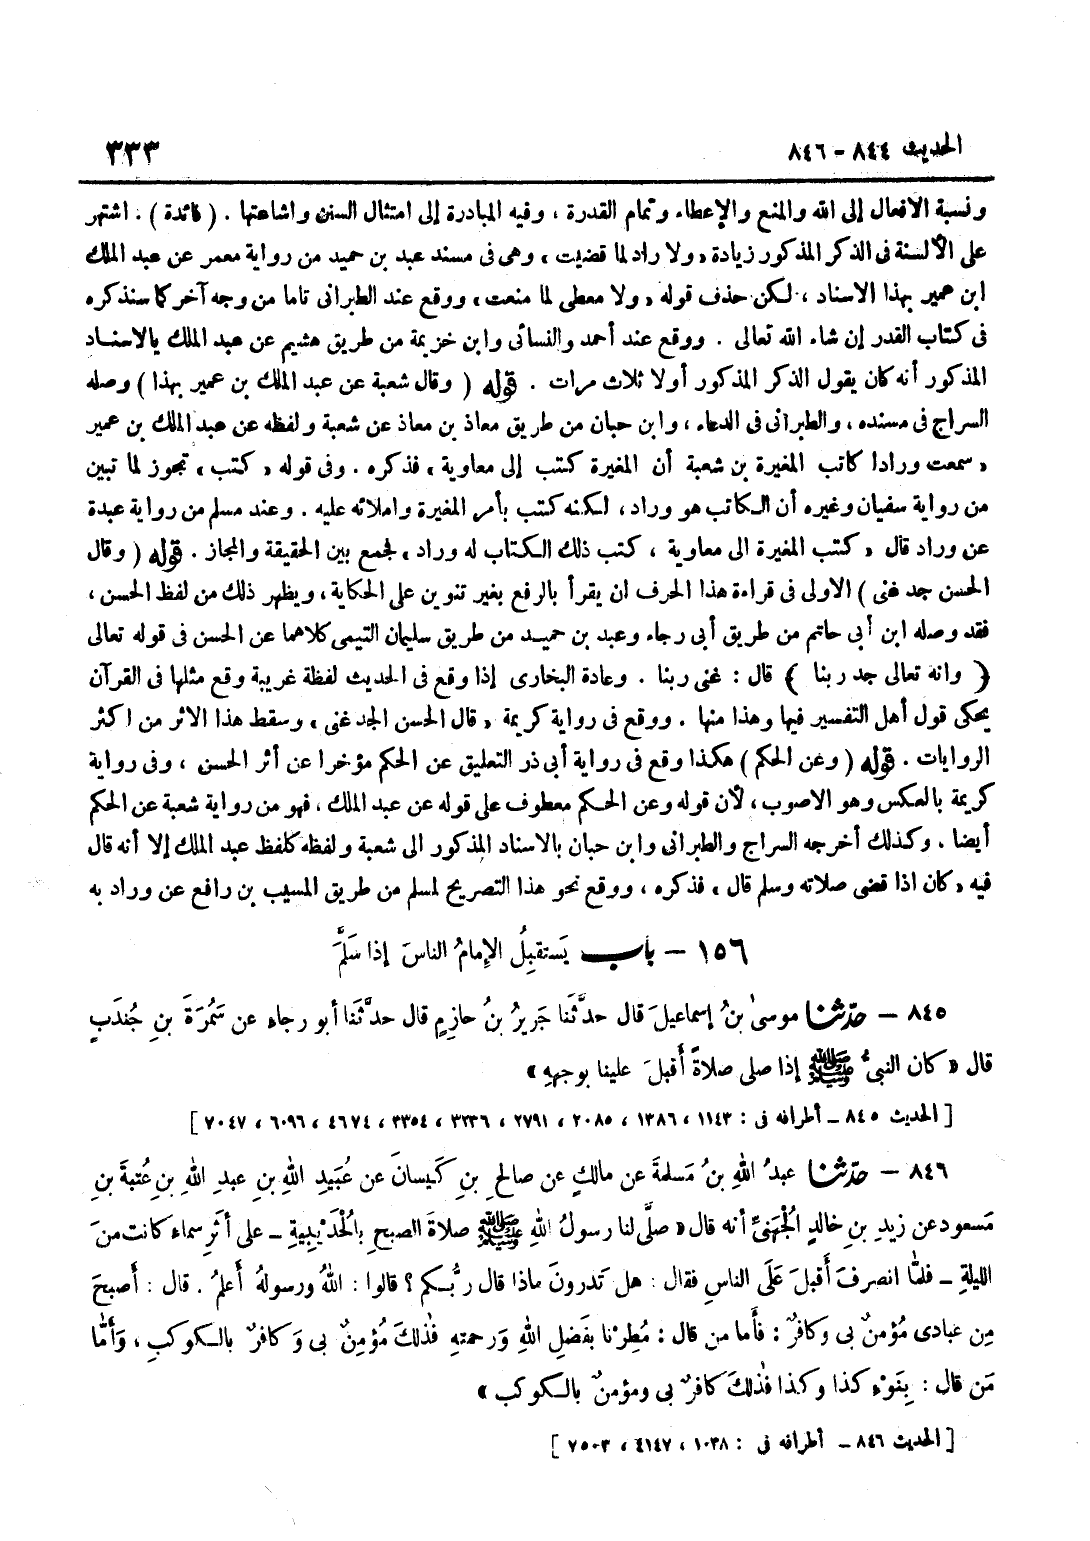 الحديث ٨٤٤ - ٨٤٦
٣٣٣
ونسبة الافعال إلى الله والمنع والإعطاء وتمام القدرة ، وفيه المبادرة إلى امتثال السنن واشاعتها . ( فائدة ) : اشتهر
على الألسنة فى الذكر المذكور زيادة « ولا راد لما قضيت » وهى فى مسند عبد بن حميد من رواية معمر عن عبد الملك
ابن عمير بهذا الاسناد ، لكن حذف قوله « ولا معطى لما منعت » ووقع عند الطبرانى تاما من وجه آخر كما سنذكره
فى كتاب القدر إن شاء الله تعالى . ووقع عند أحمد والنسائى وابن خزيمة من طريق هشيم عن عبد الملك بالاسناد
المذكور أنه كان يقول الذكر المذكور أولا ثلاث مرات . قوله ( وقال شعبة عن عبد الملك بن عمير بهذا ) وصله
السراج فى مسنده ، والطبرانى فى الدعاء ، وابن حبان من طريق معاذ بن معاذ عن شعبة ولفظه عن عبد الملك بن عمير
« سمعت ورادا كاتب المغيرة بن شعبة أن المغيرة كتب إلى معاوية » فذكره . وفى قوله « كتب » تجوز لما تبين
من رواية سفيان وغيره أن الكاتب هو وراد ، لكنه كتب بأمر المغيرة واملائه عليه . وعند مسلم من رواية عبدة
عن وراد قال « كتب المغيرة الى معاوية ، كتب ذلك الكتاب له وراد » لجمع بين الحقيقة والمجاز . قوله ( وقال
الحسن جد غنى ) الاولى فى قراءة هذا الحرف ان يقرأ بالرفع بغير تنوين على الحكاية ، ويظهر ذلك من لفظ الحسن ،
فقد وصله ابن أبى حاتم من طريق أبى رجاء وعبد بن حميد من طريق سليمان التيمى كلاهما عن الحسن فى قوله تعالى
﴿ وانه تعالى جد ربنا ﴾ قال : غنى ربنا . وعادة البخارى إذا وقع فى الحديث لفظة غريبة وقع مثلها فى القرآن
يحكى قول أهل التفسير فيها وهذا منها . ووقع فى رواية كريمة « قال الحسن الجد غنى » وسقط هذا الاثر من اكثر
الروايات . قوله ( وعن الحكم ) هكذا وقع فى رواية أبى ذر التعليق عن الحكم مؤخرا عن أثر الحسن ، وفى رواية
كريمة بالعكس وهو الاصوب ، لأن قوله وعن الحكم معطوف على قوله عن عبد الملك ، فهو من رواية شعبة عن الحكم
أيضا . وكذلك أخرجه السراج والطبرانى وابن حبان بالاسناد المذكور الى شعبة ولفظه كلفظ عبد الملك إلا أنه قال
فيه « كان اذا قضى صلاته وسلم قال » فذكره ، ووقع نحو هذا التصريح لمسلم من طريق المسيب بن رافع عن وراد به
١٥٦ - باب يَستقبِلُ الإمامُ الناسَ إذا سَلَّمَ
٨٤٥ - حدّثنا موسىٰ بنُ إسماعيلَ قال حدَّثَنا جَريرُ بنُ حازِمٍ قال حدَّثَنا أبو رجاءٍ عن سَمُرَةَ بنِ جُندَبٍ
قال « كان النبىُّ ﷺ إذا صلى صلاةً أَقبلَ علينا بوجههِ »
[ الحديث ٨٤٥ - أطرافه فى : ١١٤٣ ، ١٣٨٦ ، ٢٠٨٥ ، ٢٧٩١ ، ٣٢٣٦ ، ٣٣٥٤ ، ٤٦٧٤ ، ٦٠٩٦ ، ٧٠٤٧ ]
٨٤٦ - حدّثنا عبدُ اللهِ بنُ مَسلمةَ عن مالكٍ عن صالحِ بنِ كَيسانَ عن عُبَيدِ اللهِ بنِ عبدِ اللهِ بنِ عُتبةَ بنِ
مَسعودٍ عن زيدِ بنِ خالدٍ الجُهَنىِّ أنه قال « صلَّى لنا رسولُ اللهِ ﷺ صلاةَ الصبحِ بالحُدَيْبِيةِ - على أَثَرِ سماءٍ كانت منَ
الليلةِ - فلمّا انصرفَ أَقبلَ عَلَى الناسِ فقال : هل تَدرونَ ماذا قال ربُّكم ؟ قالوا : اللهُ ورسولهُ أعلمُ . قال : أَصبحَ
مِن عبادى مُؤمنٌ بى وكافرٌ : فأَما من قال : مُطِرْنا بفَضلِ اللهِ ورحمتهِ فذٰلكَ مُؤمِنٌ بى وكافرٌ بالكوكبِ ، وَأمّا
مَن قال : بِنَوْءِ كذا وكذا فذٰلكَ كافرٌ بى ومؤمنٌ بالكوكب »
[ الحديث ٨٤٦ - أطرافه فى : ١٠٣٨ ، ٤١٤٧ ، ٧٥٠٣ ]